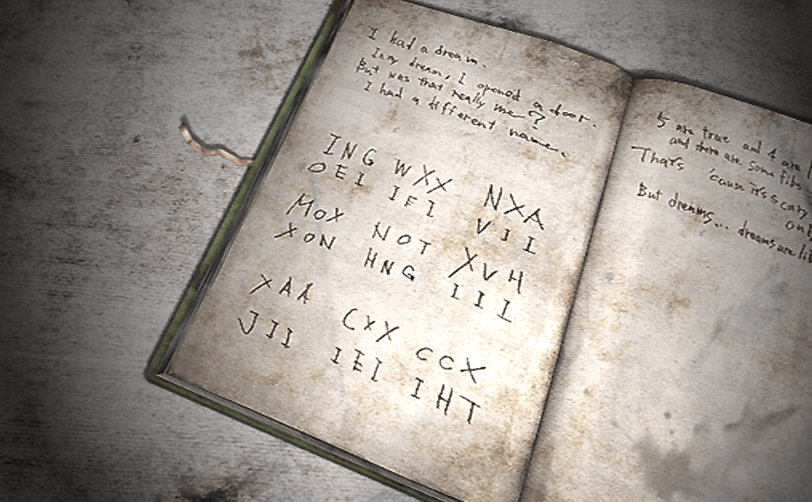 I had a dream.
In my dream, I opened a door.
But was that really me?
I had a different name.
ING WXX NXA
OEI IFI VII
MOX NOT XVH
XON HNG III
XAA CXX CCX
JII IEI IHT
5 are true and 4 are
and there are some
That's 'cause it's
But dreams... dreams are